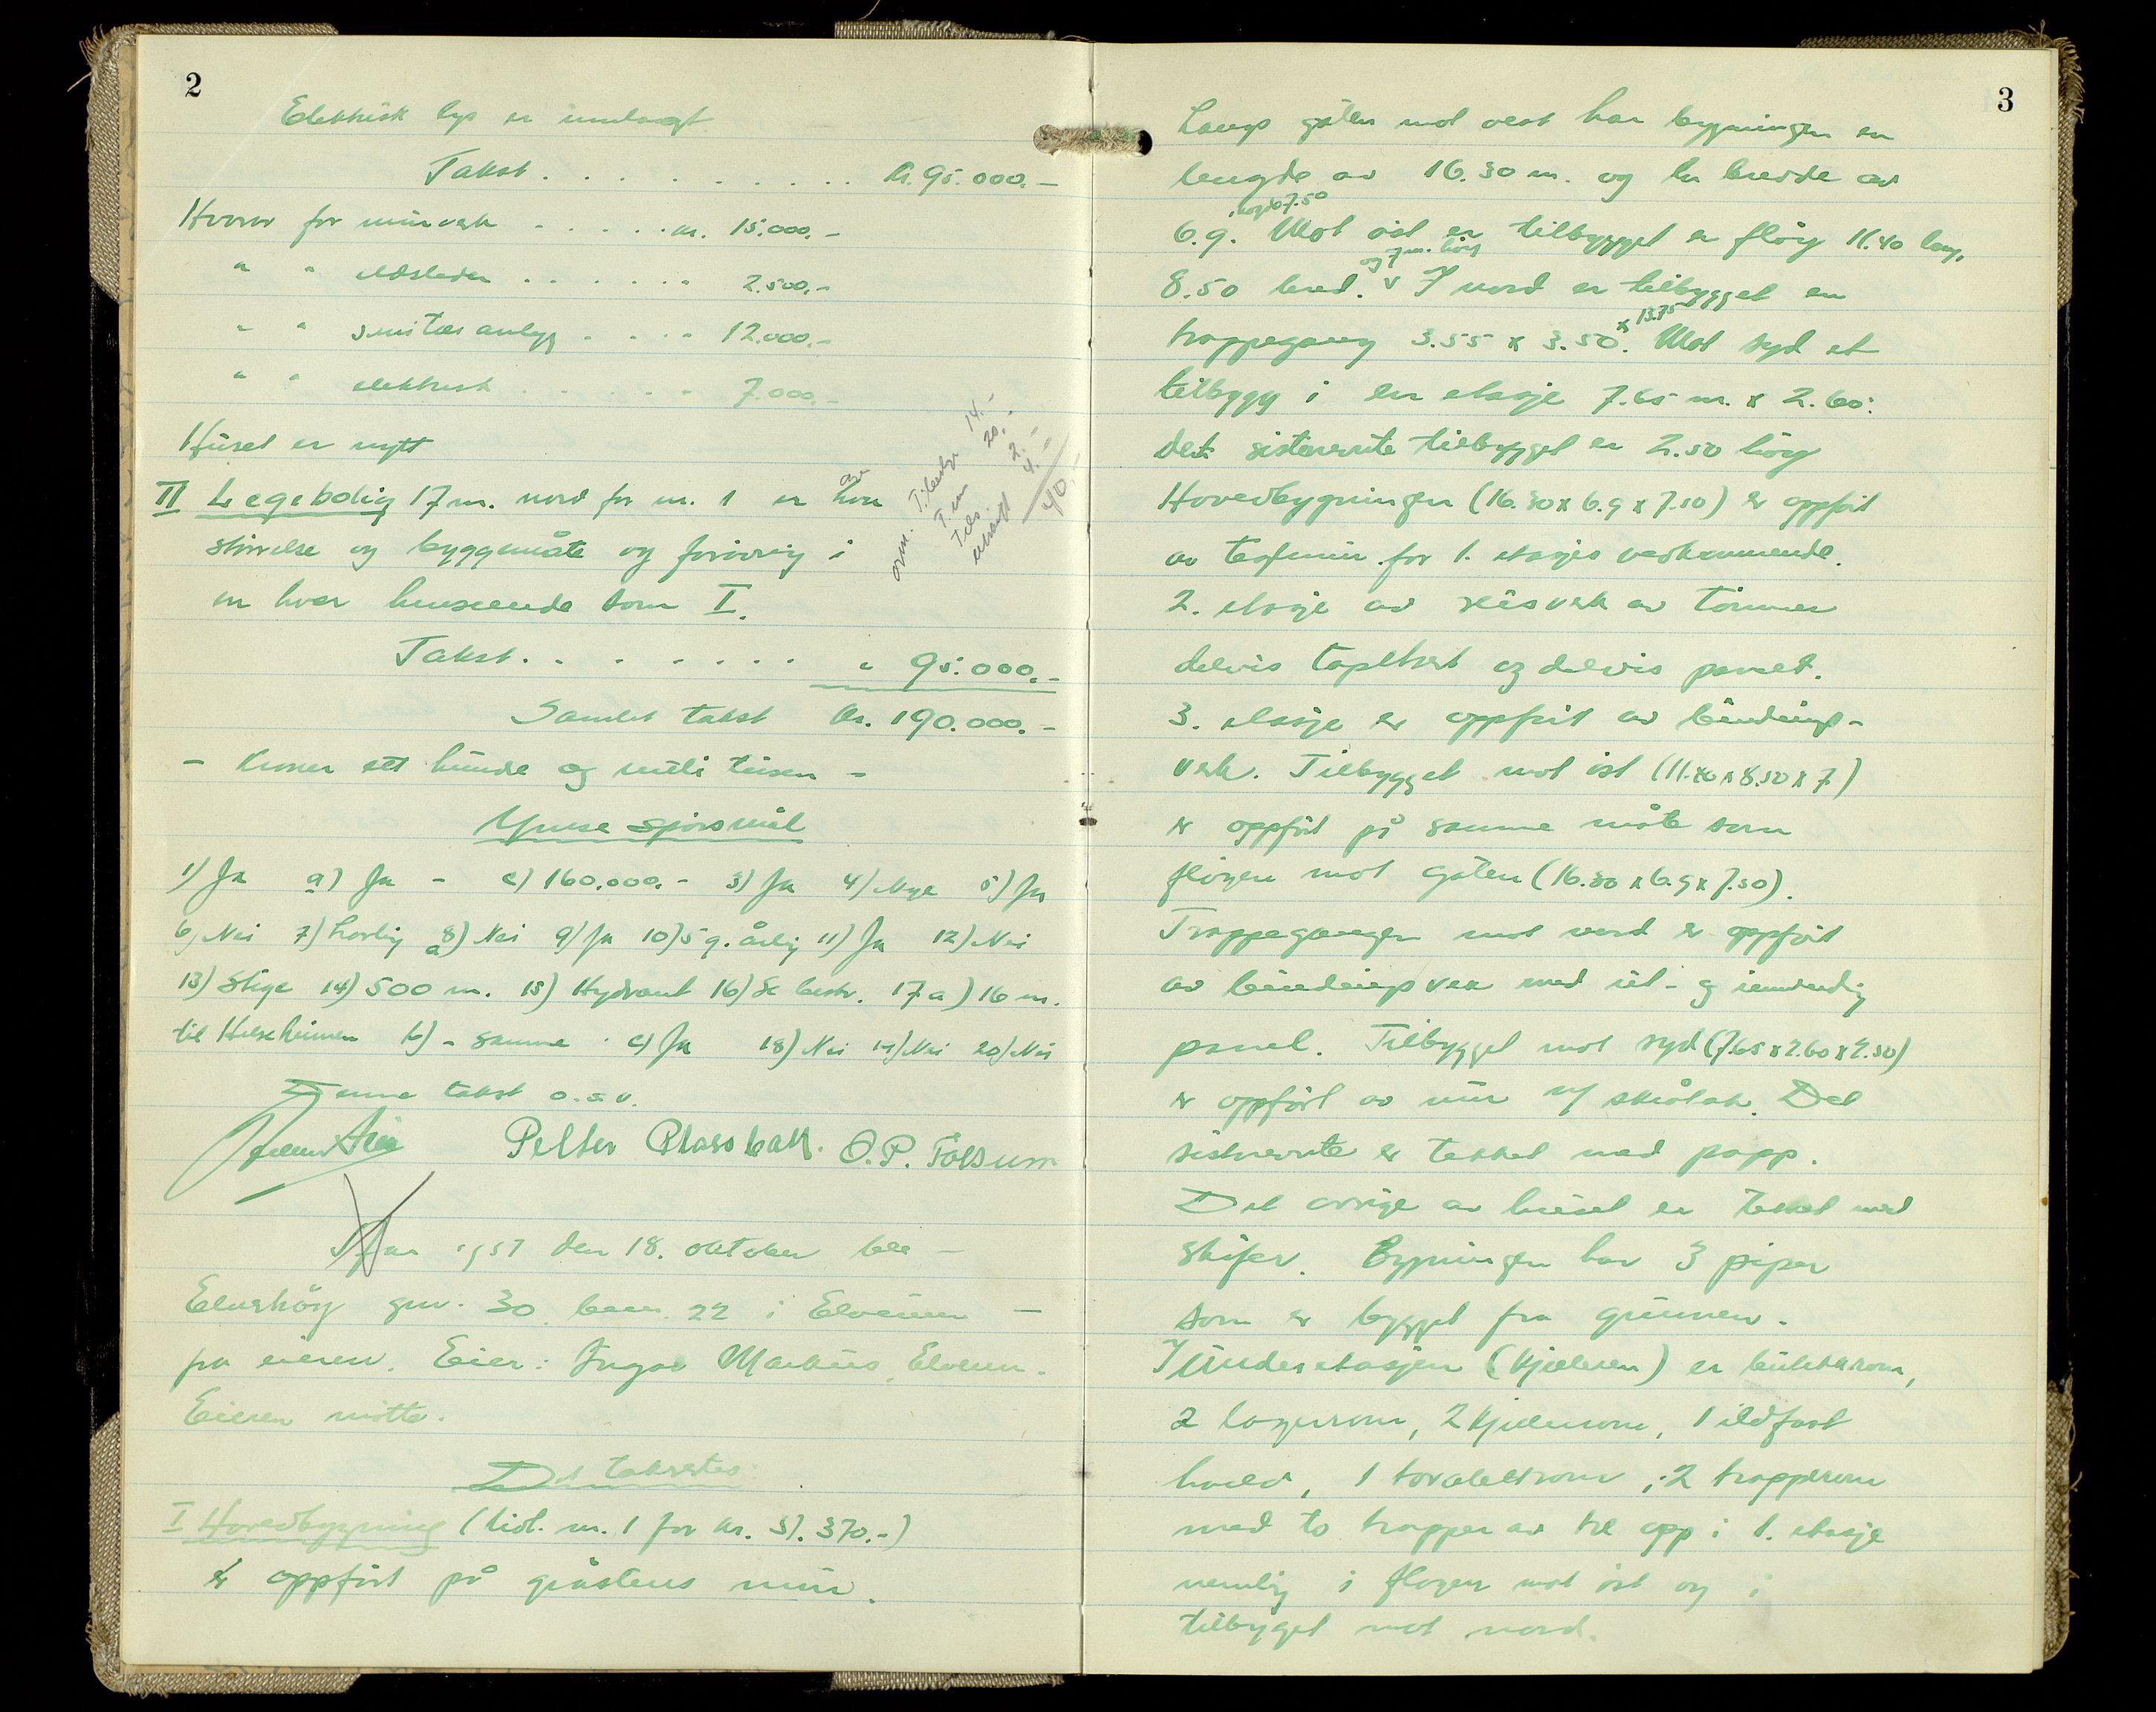 2
Elektrisk lys er innlagt
Takst . . . . . . . . . . kr. 95.000.-
Hvorav for murverk . . . . . kr. 15.000.-
" " ildsteder . . . . . . " 2.500.-
" " sanitæranlegg . . . . 12.000.-
" " elektrisk . . . . . " 7.000.-
Huset er nytt
14.-
20.-
2.-
4.-
40.-
II Legebolig 17 m. nord for nr. 1 er av
størrelse og byggemåte og forøvrig i
en hver henseende som I.
Takst. . . . . . . . " 95.000.-
Samlet takst kr. 190.000.-
- Kroner ett hundre og nitti tusen -
Ymse spørsmål
1) Ja a) Ja - c) 160.000.- 3) Ja 4) Nye 5) Ja
6) Nei 7) Lovlig 8) Nei 9) Ja 10) 5 g. årlig 11) Ja 12) Nei
13) Stige 14) 500 m. 15) Hydrant 16) Se beskr. 17 a) 16 m.
til Helseheimen b) - samme c) Ja 18) Nei 19) Nei 20) Nei
Denne takst o.s.v.
Petter O.P. Tolsum
År 1957 den 18. oktober ble -
Elvershøy gnr. 30 bnr. 22 i Elverum -
fra eieren. Eier: Ingar Markus, Elverum.
Eieren møtte.
Det takseres:
I Hovedbygning (tidl. nr. 1 for kr. 51.370.-)
er oppført på gråstens mur.
3
Langs gaten mot vest har bygningen en
lengde av 16.30 m. og en bredde av
høyde 7.50
6.9. Mot øst er tilbygget en fløy 11.40 lang,
og 7 m. høy
8.50 bred. v I nord er tilbygget en
x 13.75
trappegang 3.55 x 3.50. Mot syd et
tilbygg i en etasje 7.65 m. x 2.60.
det sistnevnte tilbygget er 2.50 høy
Hovedbygningen (16.30 x 6.9 x 7.50) er oppført
av teglmur for 1. etasjes vedkommende.
2. etasje av reisverk av tømmer
delvis teglkledt og delvis panelt.
3. etasje er oppført av bindings-
verk. Tilbygget mot øst (11.40 x 8.50 x 7)
er oppført på samme måte som
fløyen mot gaten (16.30 x 6.9 x 7.50).
Trappegangen mot nord er oppført
av bindingsverk med ut- og innvendig
panel. Tilbygget mot syd (7.65 x 2.60 x 2.50)
er oppført av mur m/ skråtak. Det
sistnevnte er tekket med papp.
Det øvrige av huset er tekket med
skifer. Bygningen har 3 piper
som er bygget fra grunnen.
I underetasjen (kjelleren) er butikkrom,
2 lagerrom, 2 kjellerrom, 1 ildfast
hvelv, 1 toralettrom, 2 trapperom
med to trapper av tre opp i 1. etasje
nemlig i fløyen mot øst og i
tilbygget mot nord.